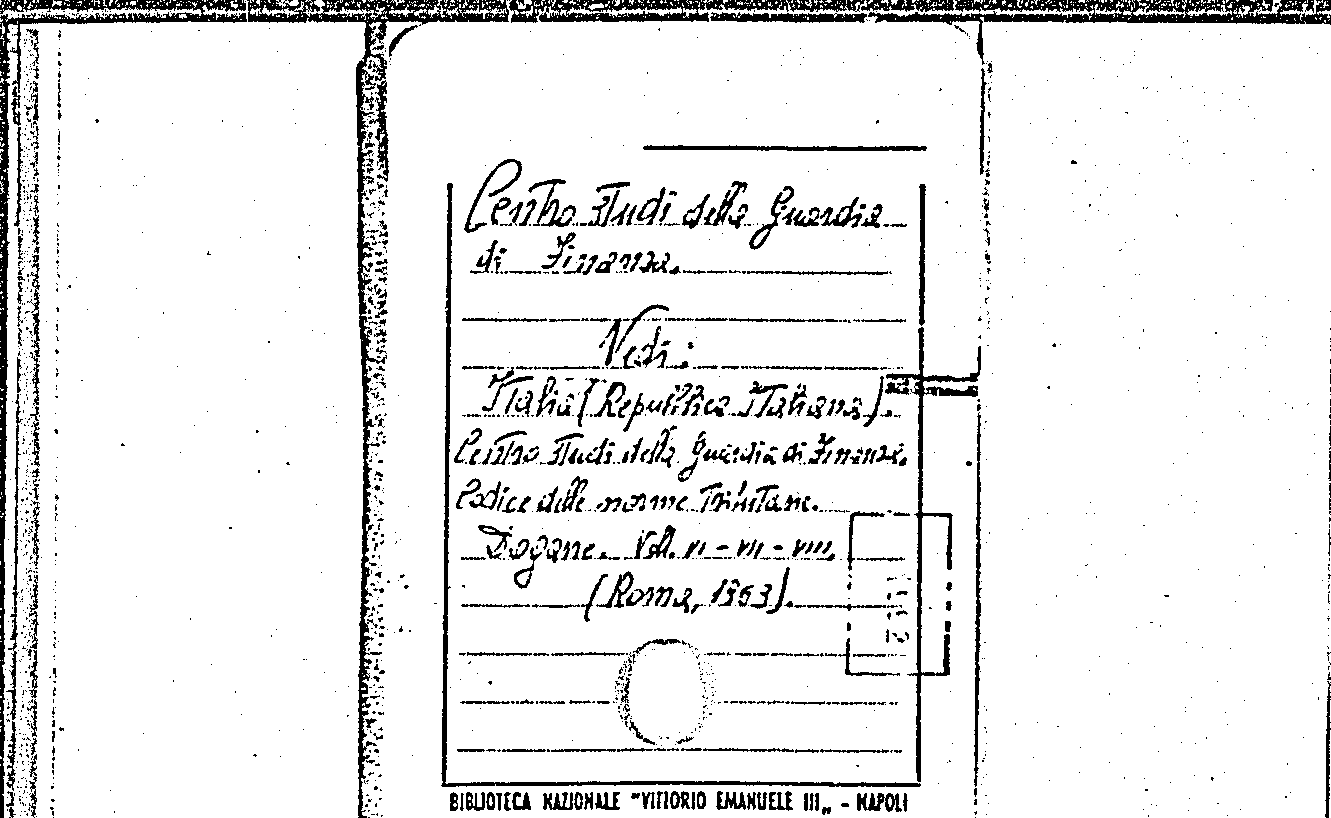 Centro Studi della Guardia
di Finanza.
Vedi:
Italia (Repubblica Italiana).
Centro Studi della Guardia di Finanza.
Codice delle norme Tributarie.
Dogane. Voll. VI - VII - VIII.
(Roma, 1963).
BIBLIOTECA NAZIONALE "VITTORIO EMANUELE III„ - NAPOLI